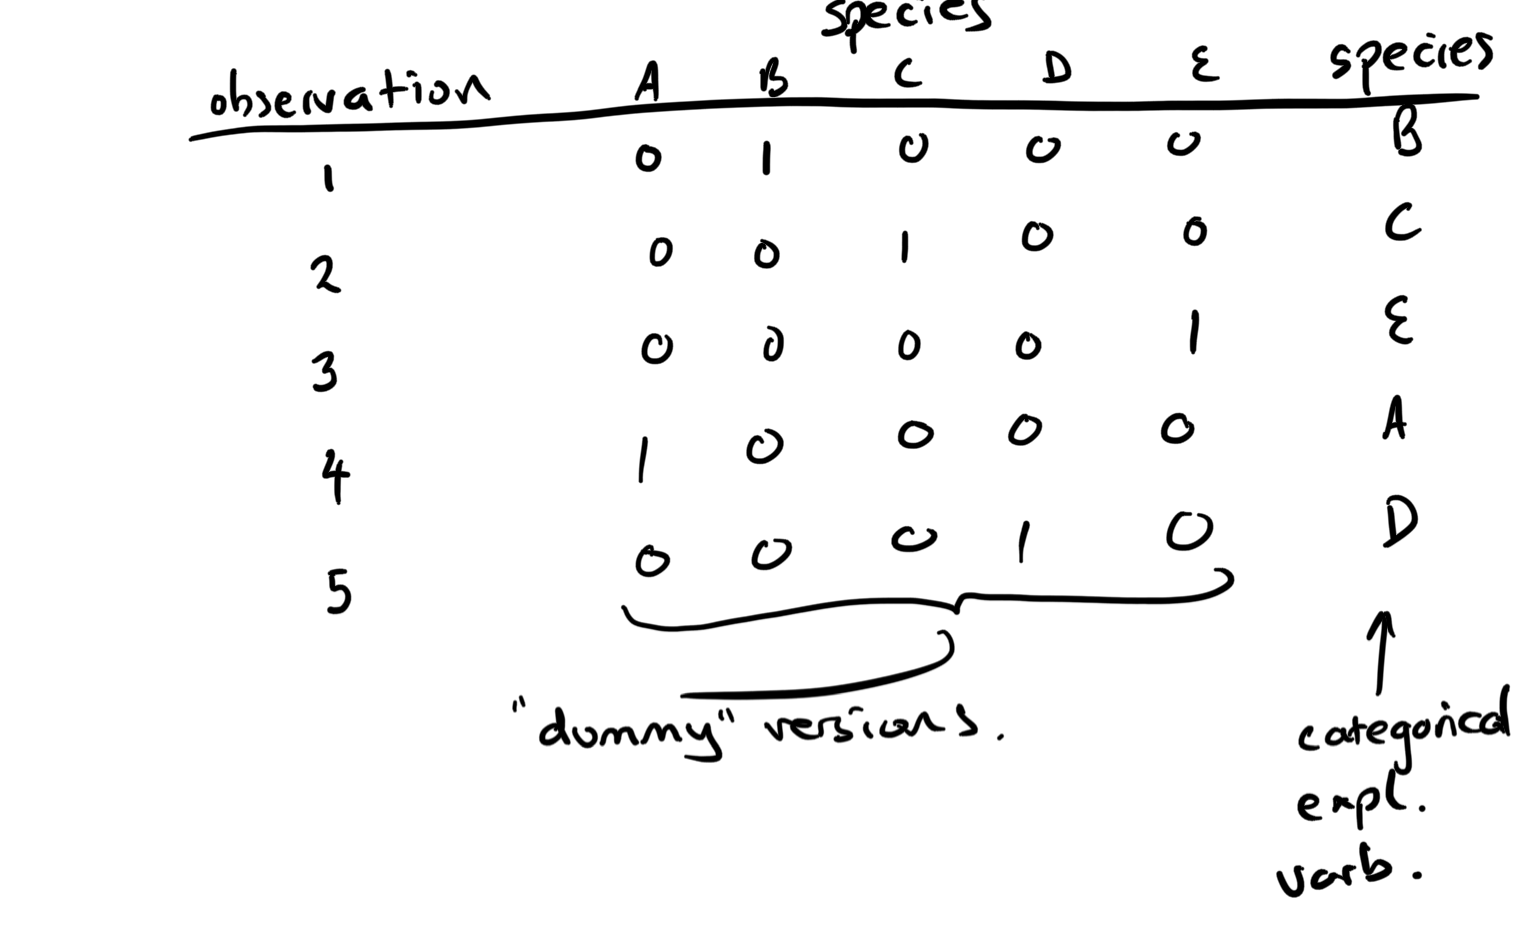 species
observation A B C D E species
1 0 1 0 0 0 B
2 0 0 1 0 0 C
3 0 0 0 0 1 E
4 1 0 0 0 0 A
5 0 0 0 1 0 D
"dummy" versions.
categorical
expl.
varb.